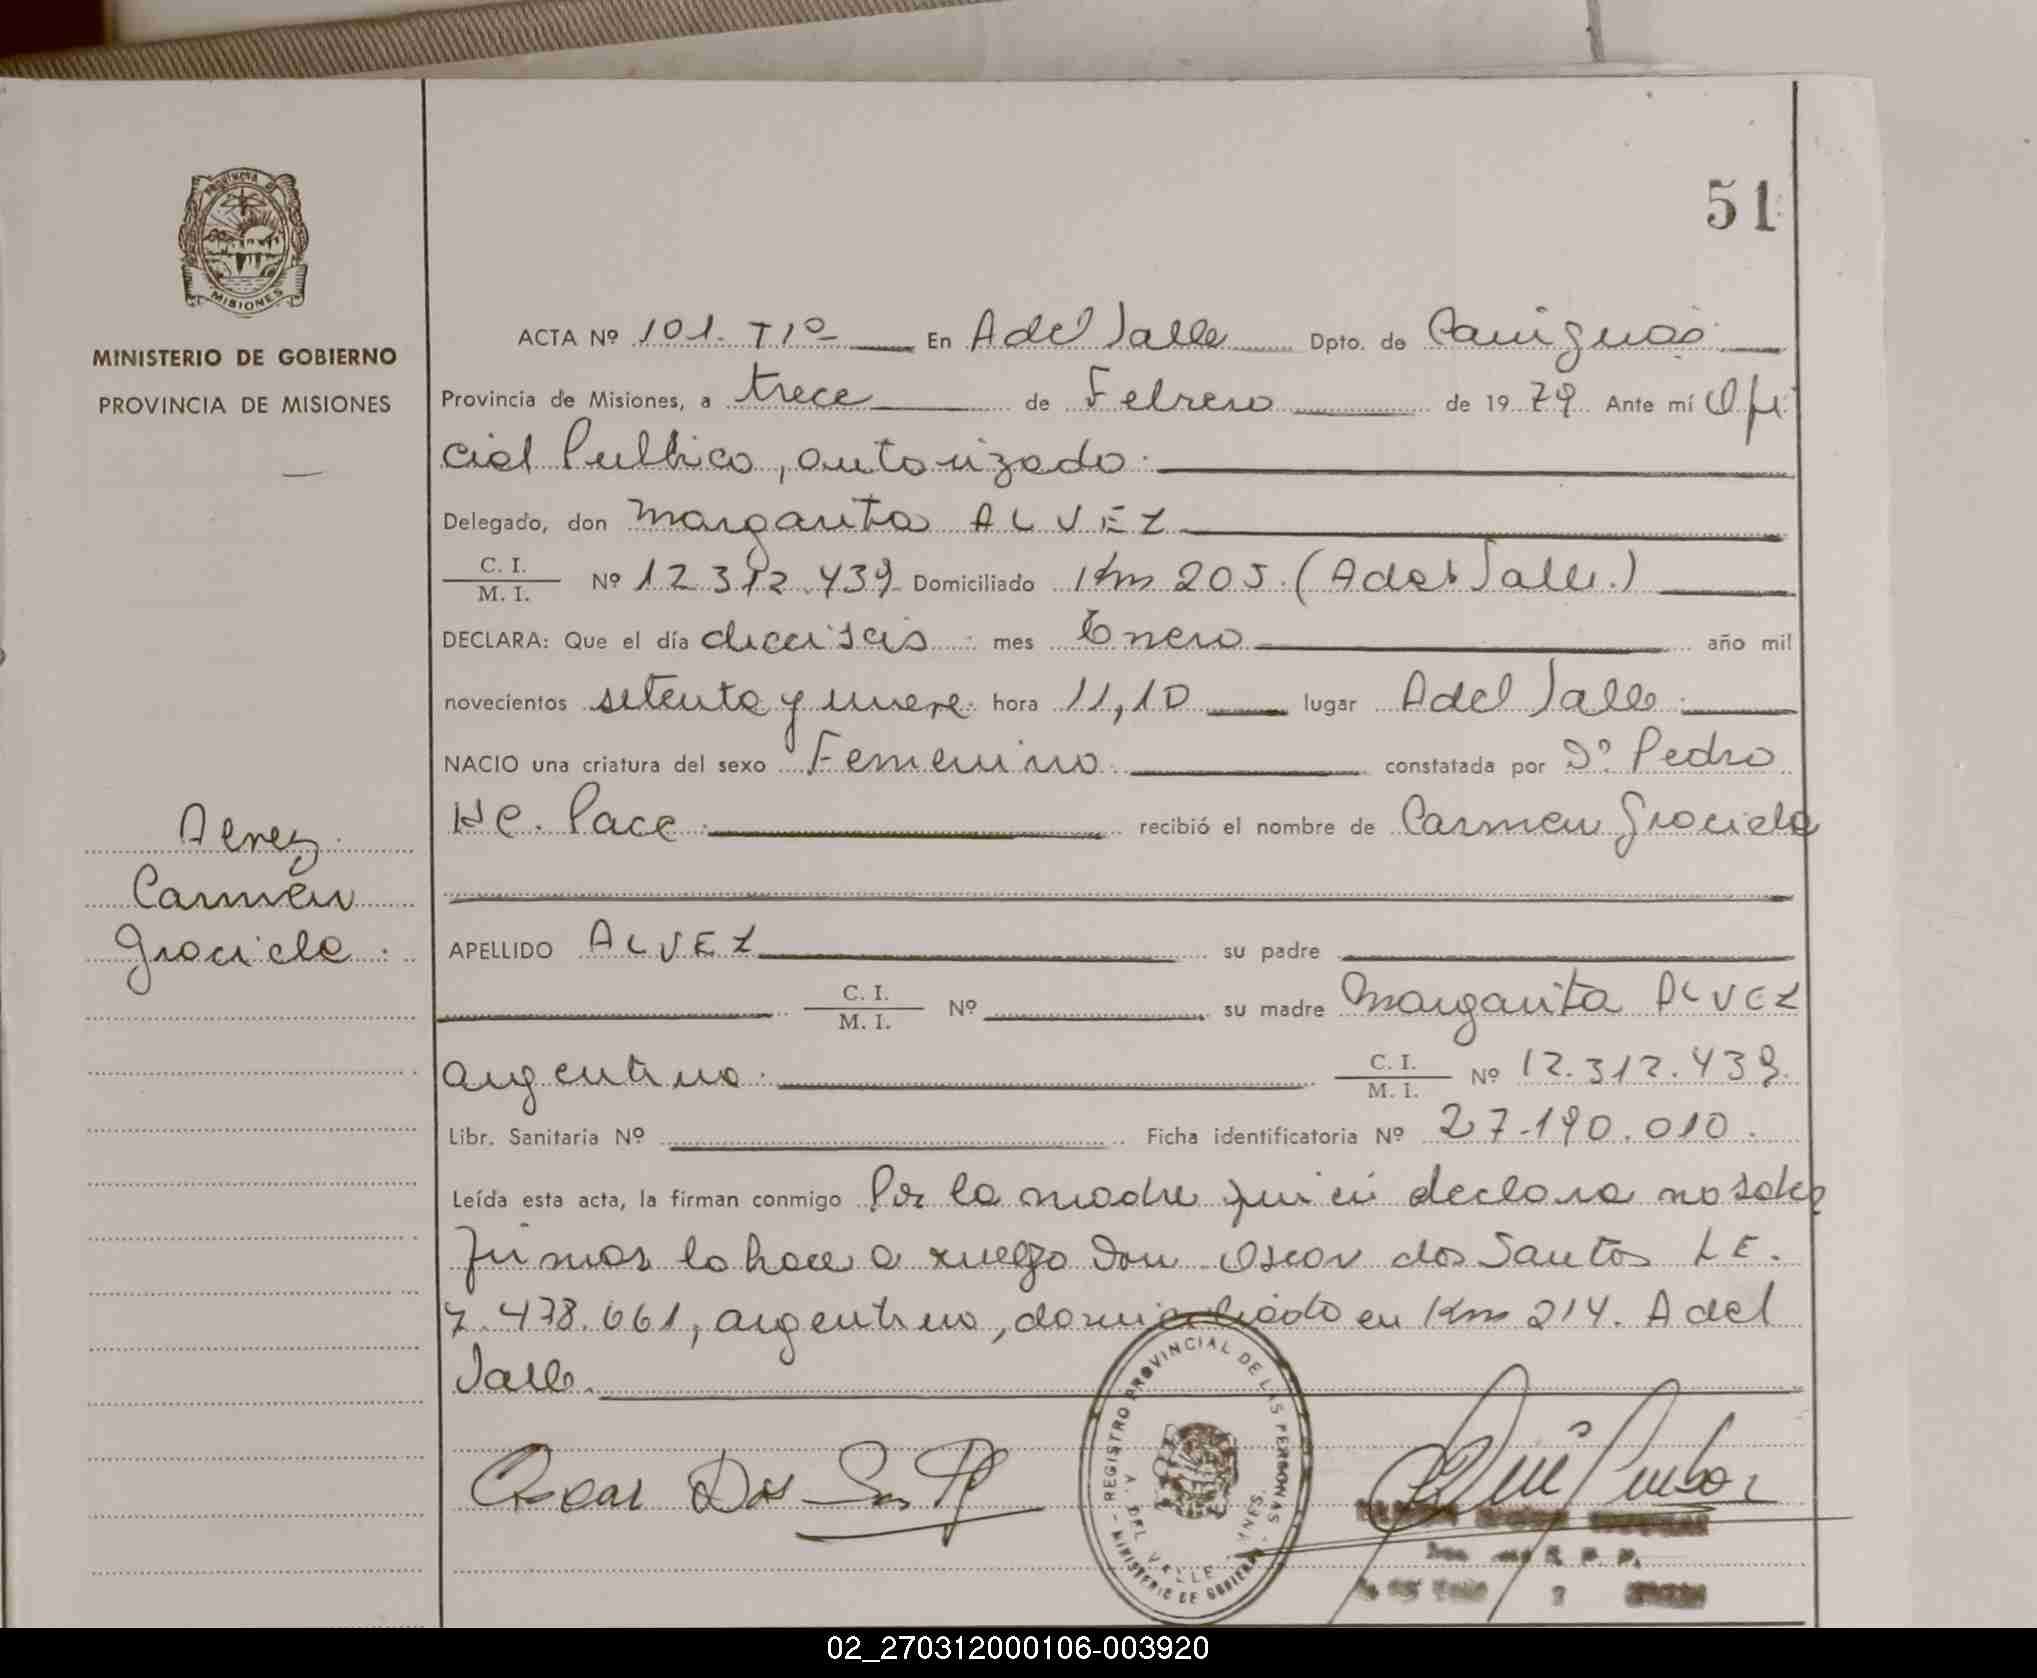 51
PROVINCIA DE
MISIONES
MINISTERIO DE GOBIERNO
PROVINCIA DE MISIONES
ACTA Nº 101. T1º En A del Valle Dpto. de Cainguás
Provincia de Misiones, a trece de Febrero de 1979 Ante mí Ofi
cial Publico, autorizado.
Delegado, don Margarita ALVEZ
C. I. / M. I. Nº 12.312.439 Domiciliado Km 205. (A del Valle.)
DECLARA: Que el día dieciseis mes Enero año mil
novecientos setenta y nueve hora 11,10 lugar A del Valle.
NACIO una criatura del sexo Femenino. constatada por Dº. Pedro
He. Pace. recibió el nombre de Carmen Graciela
APELLIDO ALVEZ su padre
C. I. / M. I. Nº su madre Margarita ALVEZ
argentina. C. I. / M. I. Nº 12.312.439.
Libr. Sanitaria Nº Ficha identificatoria Nº 27.190.010.
Leída esta acta, la firman conmigo Por la madre quien declara no saber
firmar lo hace a ruego Don Oscar dos Santos L E.
7.478.661, argentino, domiciliado en Km 214. A del
Valle.
Alvez
Carmen
Graciela.
Oscar Dos Sant
REGISTRO PROVINCIAL DE LAS PERSONAS
A. DEL VALLE
MINISTERIO DE GOBIERNO
02_270312000106-003920